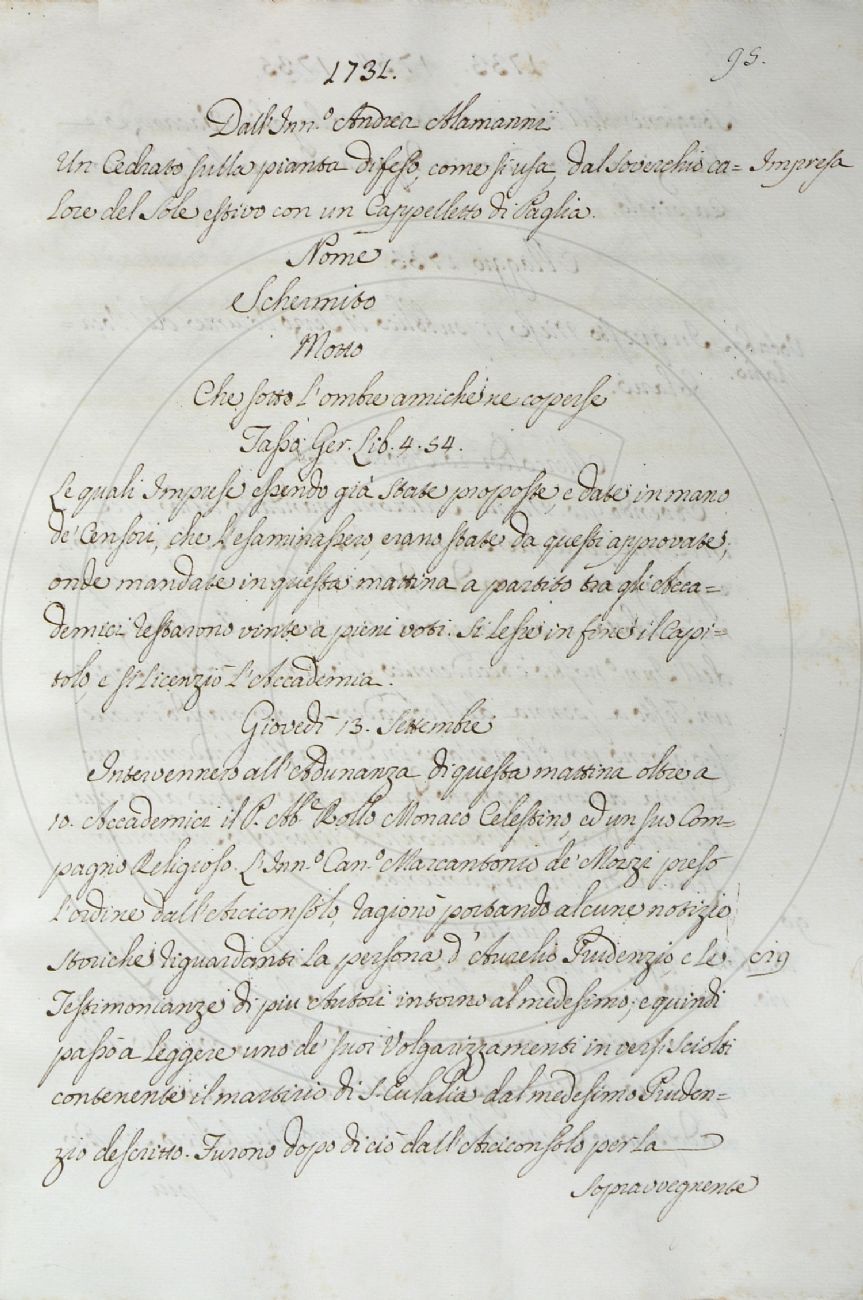 1731.
95.
Dall'Inn.º Andrea Alamanni
Un Cedrato sulla pianta difeso, come si usa, dal soverchio ca= Impresa
lore del Sole estivo con un Cappelletto di Paglia.
Nome
Schermito
Motto
Che sotto l'ombre amiche ne coperse
Tasso Ger. Lib. 4. 54.
Le quali Imprese essendo già state proposte, e date in mano
de' Censori, che l'esaminassero, erano state da questi approvate;
onde mandate in questa mattina a partito tra gli Acca=
demici restarono vinte a pieni voti. Si lesse in fine il Capi=
tolo, e si licenziò l'Accademia.
Giovedì 13. Settembre
Intervennero all'Adunanza di questa mattina oltre a
10. Accademici il P. Ab.e Rollo Monaco Celestino, ed un suo Com=
pagno Religioso. L'Inn.º Can.º Marcantonio de' Mozzi preso
l'ordine dall'Arciconsolo, ragionò portando alcune notizie
storiche riguardanti la persona d'Aurelio Prudenzio, e le
Testimonianze di piu Autori intorno al medesimo; e quindi
passò a leggere uno de' suoi Volgarizzamenti in versi sciolti
contenente il martirio di S. Eulalia dal medesimo Pruden=
zio descritto. Furono dopo di ciò dall'Arciconsolo per la
sopravvegnente